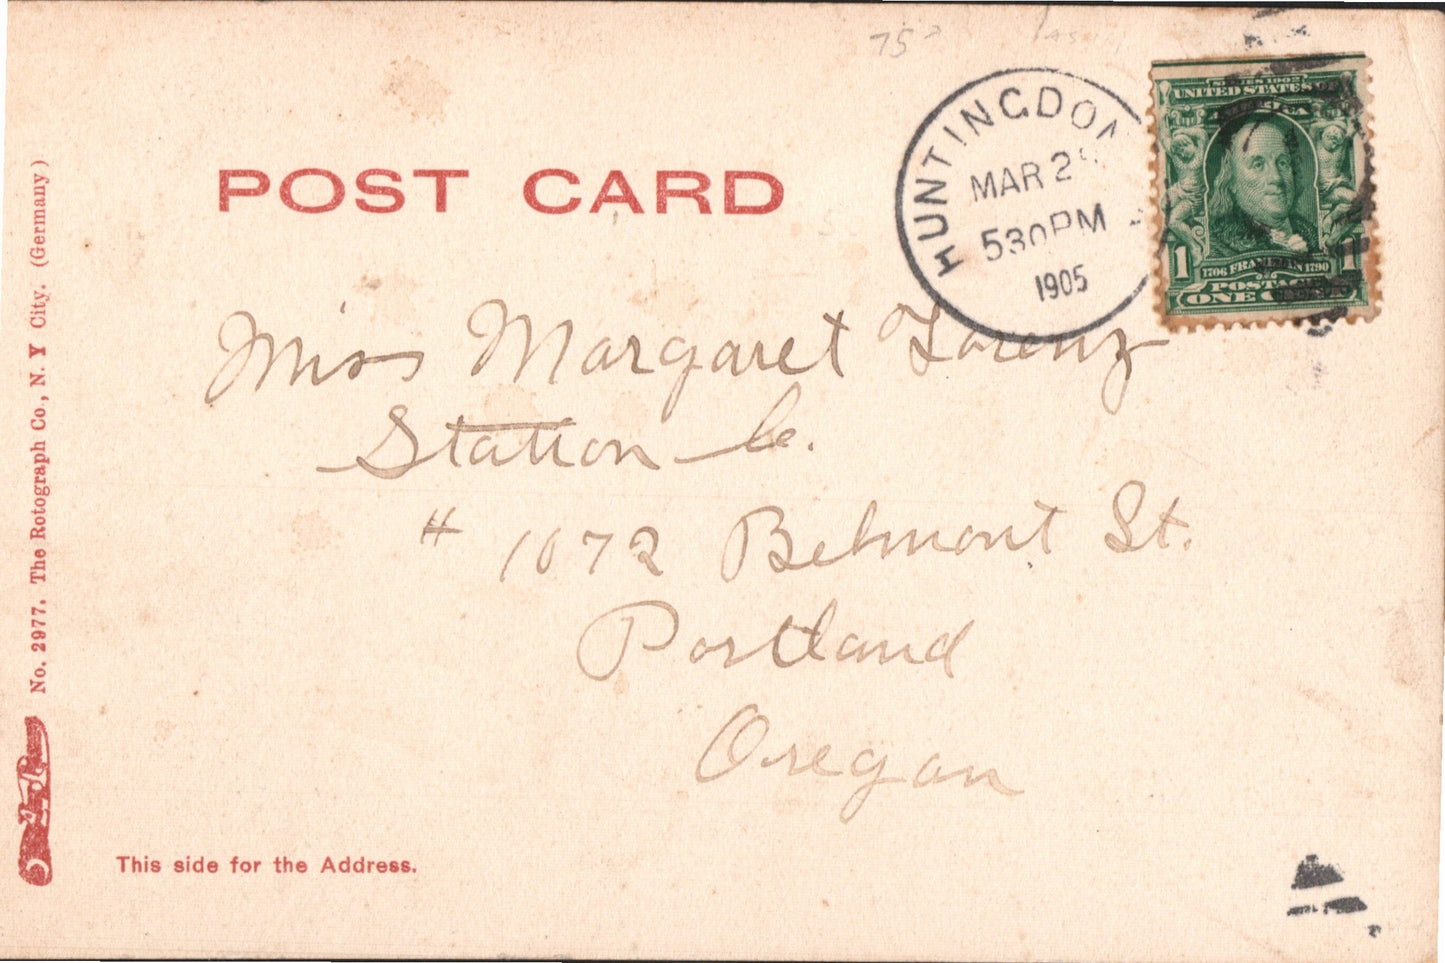 75
HUNTINGDON
MAR 2
530PM
1905
SERIES 1902
UNITED STATES OF
AMERICA
1
1706 FRANKLIN 1790
POSTAGE
ONE CENT
POST CARD
Miss Margaret Lorenz
Station C.
# 1072 Belmont St.
Portland
Oregon
This side for the Address.
No. 2977. The Rotograph Co., N. Y City. (Germany)